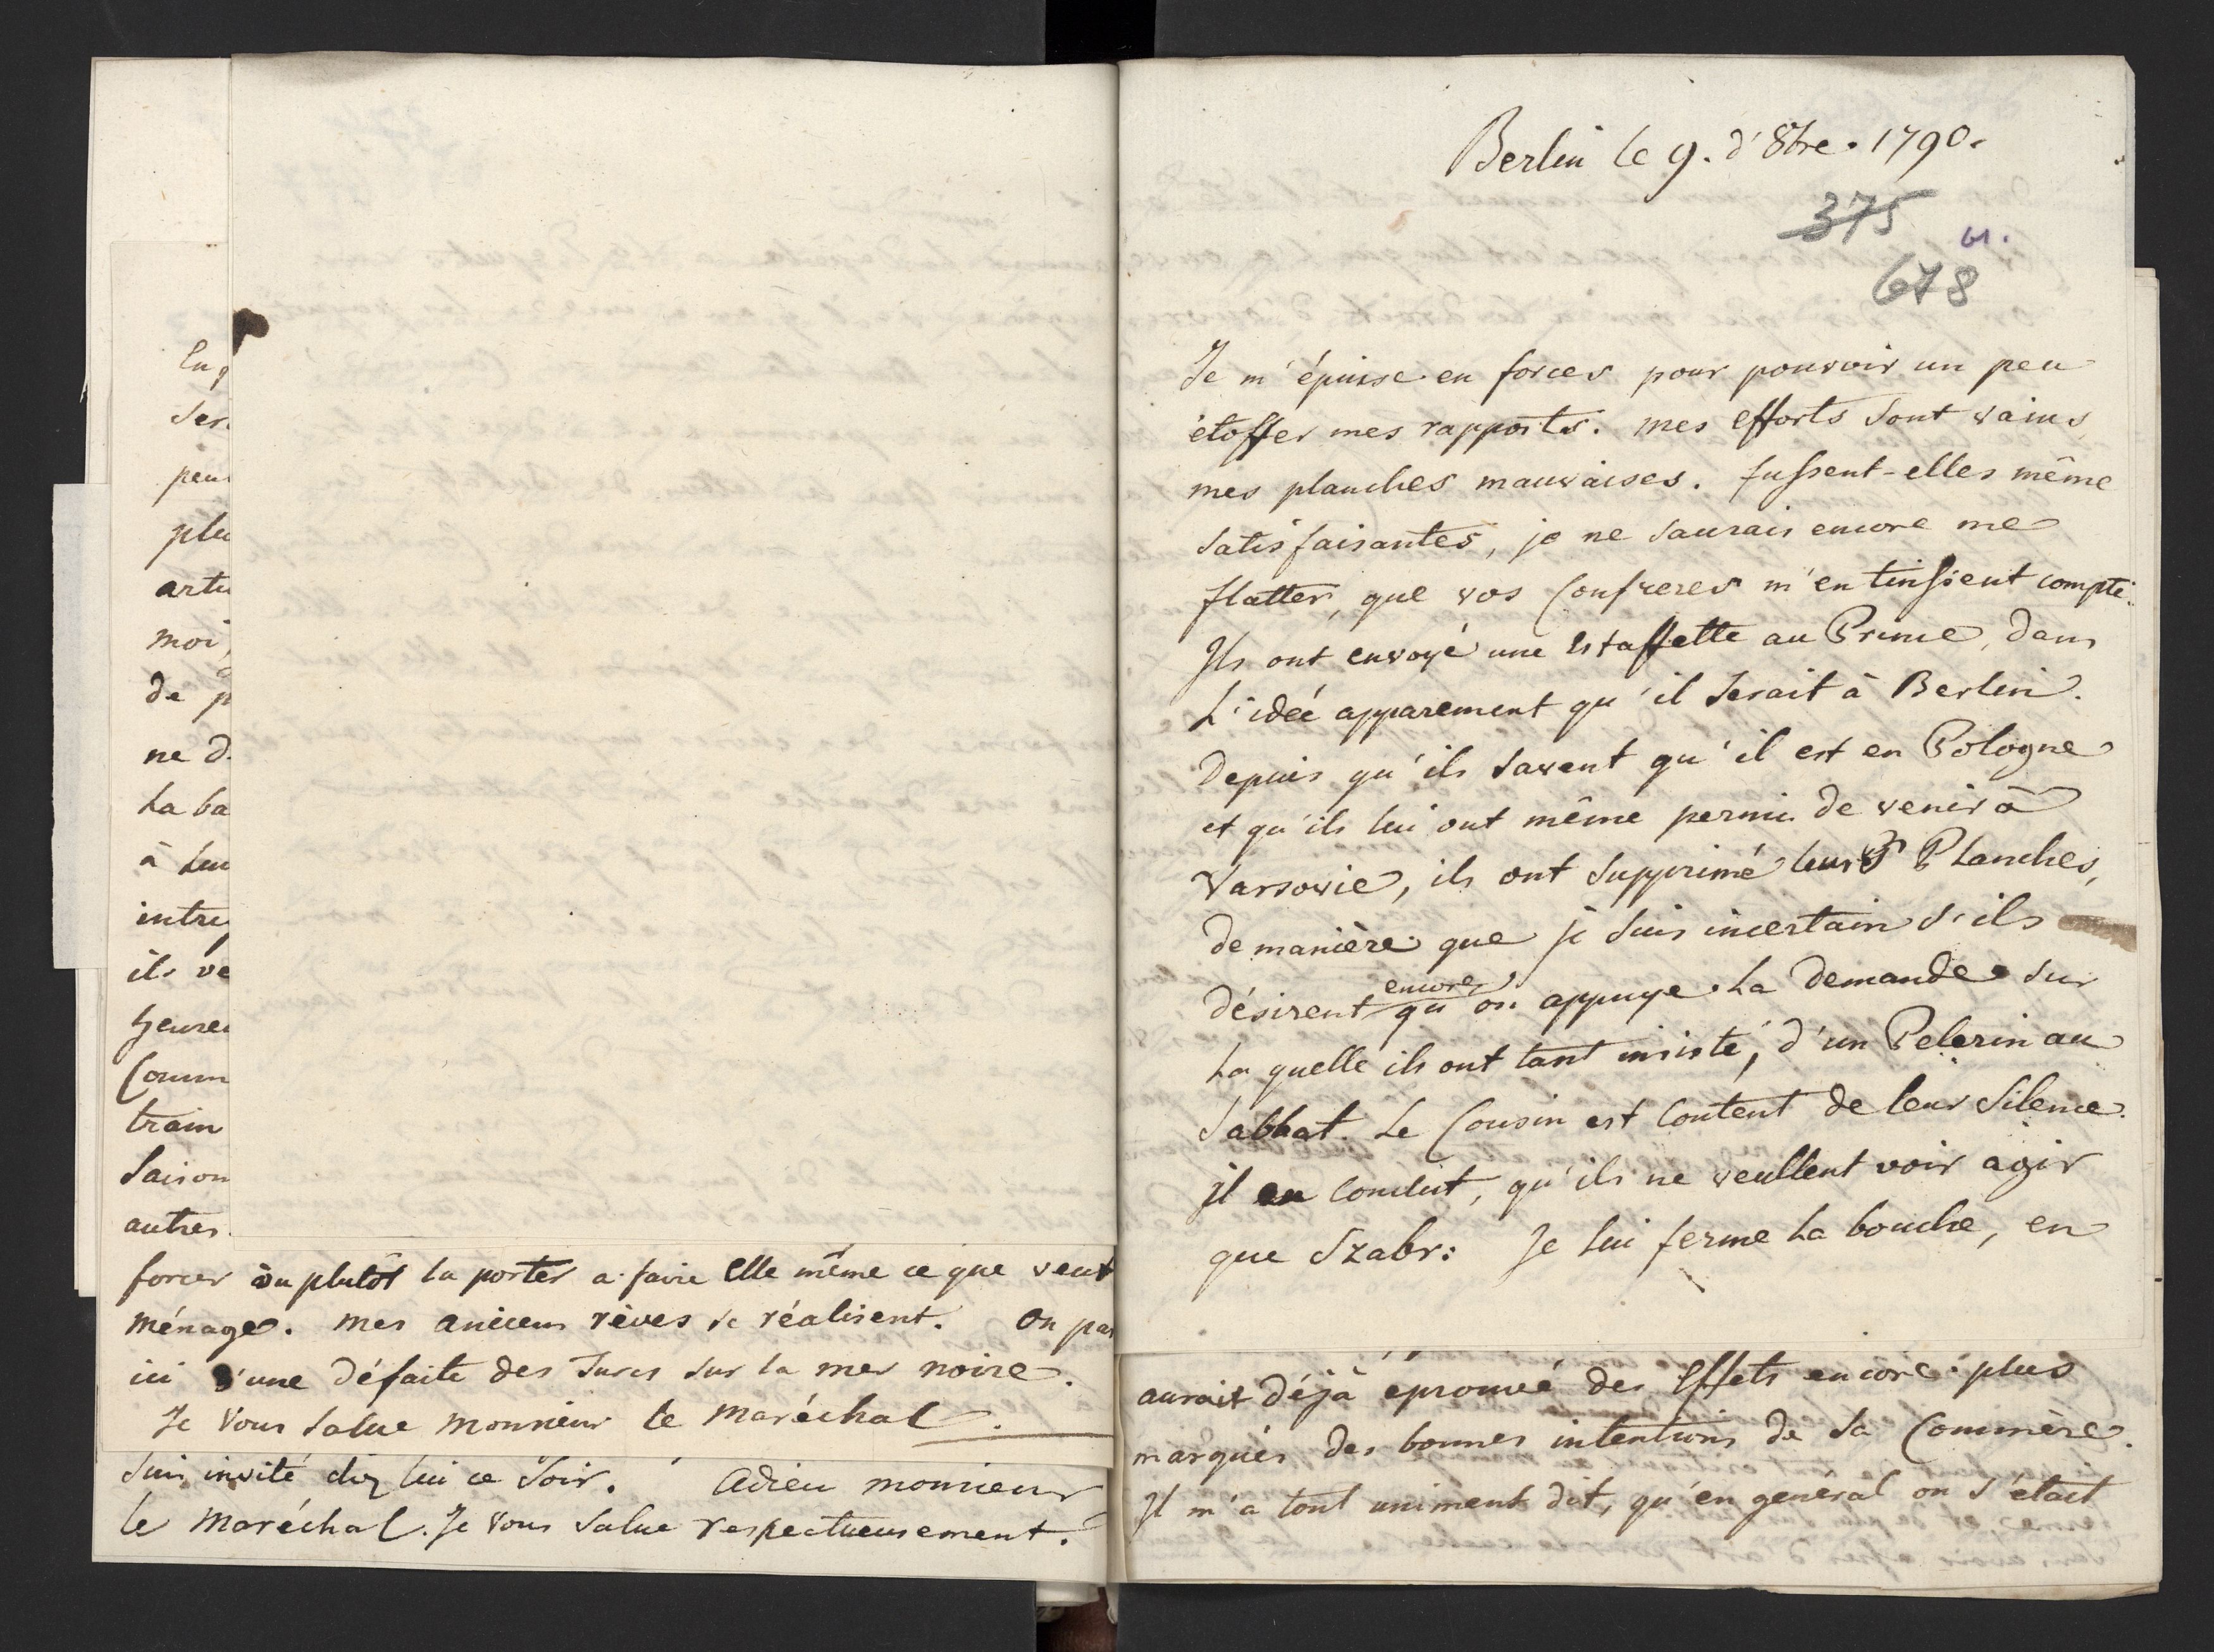 Eng
Ser
peu
plu
artu
moi,
de p
ne d
La ba
à leu
intre
ils ve
heure
Comm
train
Saison
autres.
forcer ou plutôt la porter a faire Elle même ce que veut
ménage. mes anciens rèves se réalisent. On par
ici d'une défaite des Turcs sur la mer noire.
Je vous salue Monsieur le Maréchal.
Suis invité chez lui ce Soir. Adieu monsieur
le Maréchal. Je vous salue respectueusement.
Berlin le 9. d'8bre. 1790.
375
61.
678
Je m'épuise en forces pour pouvoir un peu
étoffer mes rapports. mes efforts sont vains,
mes planches mauvaises. fussent-elles même
satisfaisantes, je ne saurais encore me
flatter, que vos Confreres m'en tinssient compte.
Ils ont envoyé une Estaffette au Prince, dans
L'idée apparement qu'il serait à Berlin.
Depuis qu'ils savent qu'il est en Pologne
et qu'ils lui ont même permis de venir à
Varsovie, ils ont supprimé leurs Planches,
de manière que je suis incertain s'ils
encore
désirent qu'on appuye La demande sur
La quelle ils ont tant insisté, d'un Pelerin au
Sabbat. Le Cousin est Content de leur Silence.
il en Conclut, qu'ils ne veullent voir agir
que Szabr: Je lui ferme La bouche, en
aurait déjà éprouvé des Effets encore plus
marqués des bonnes intentions de Sa Commère.
Il m'a tout uniment dit, qu'en general on s'était